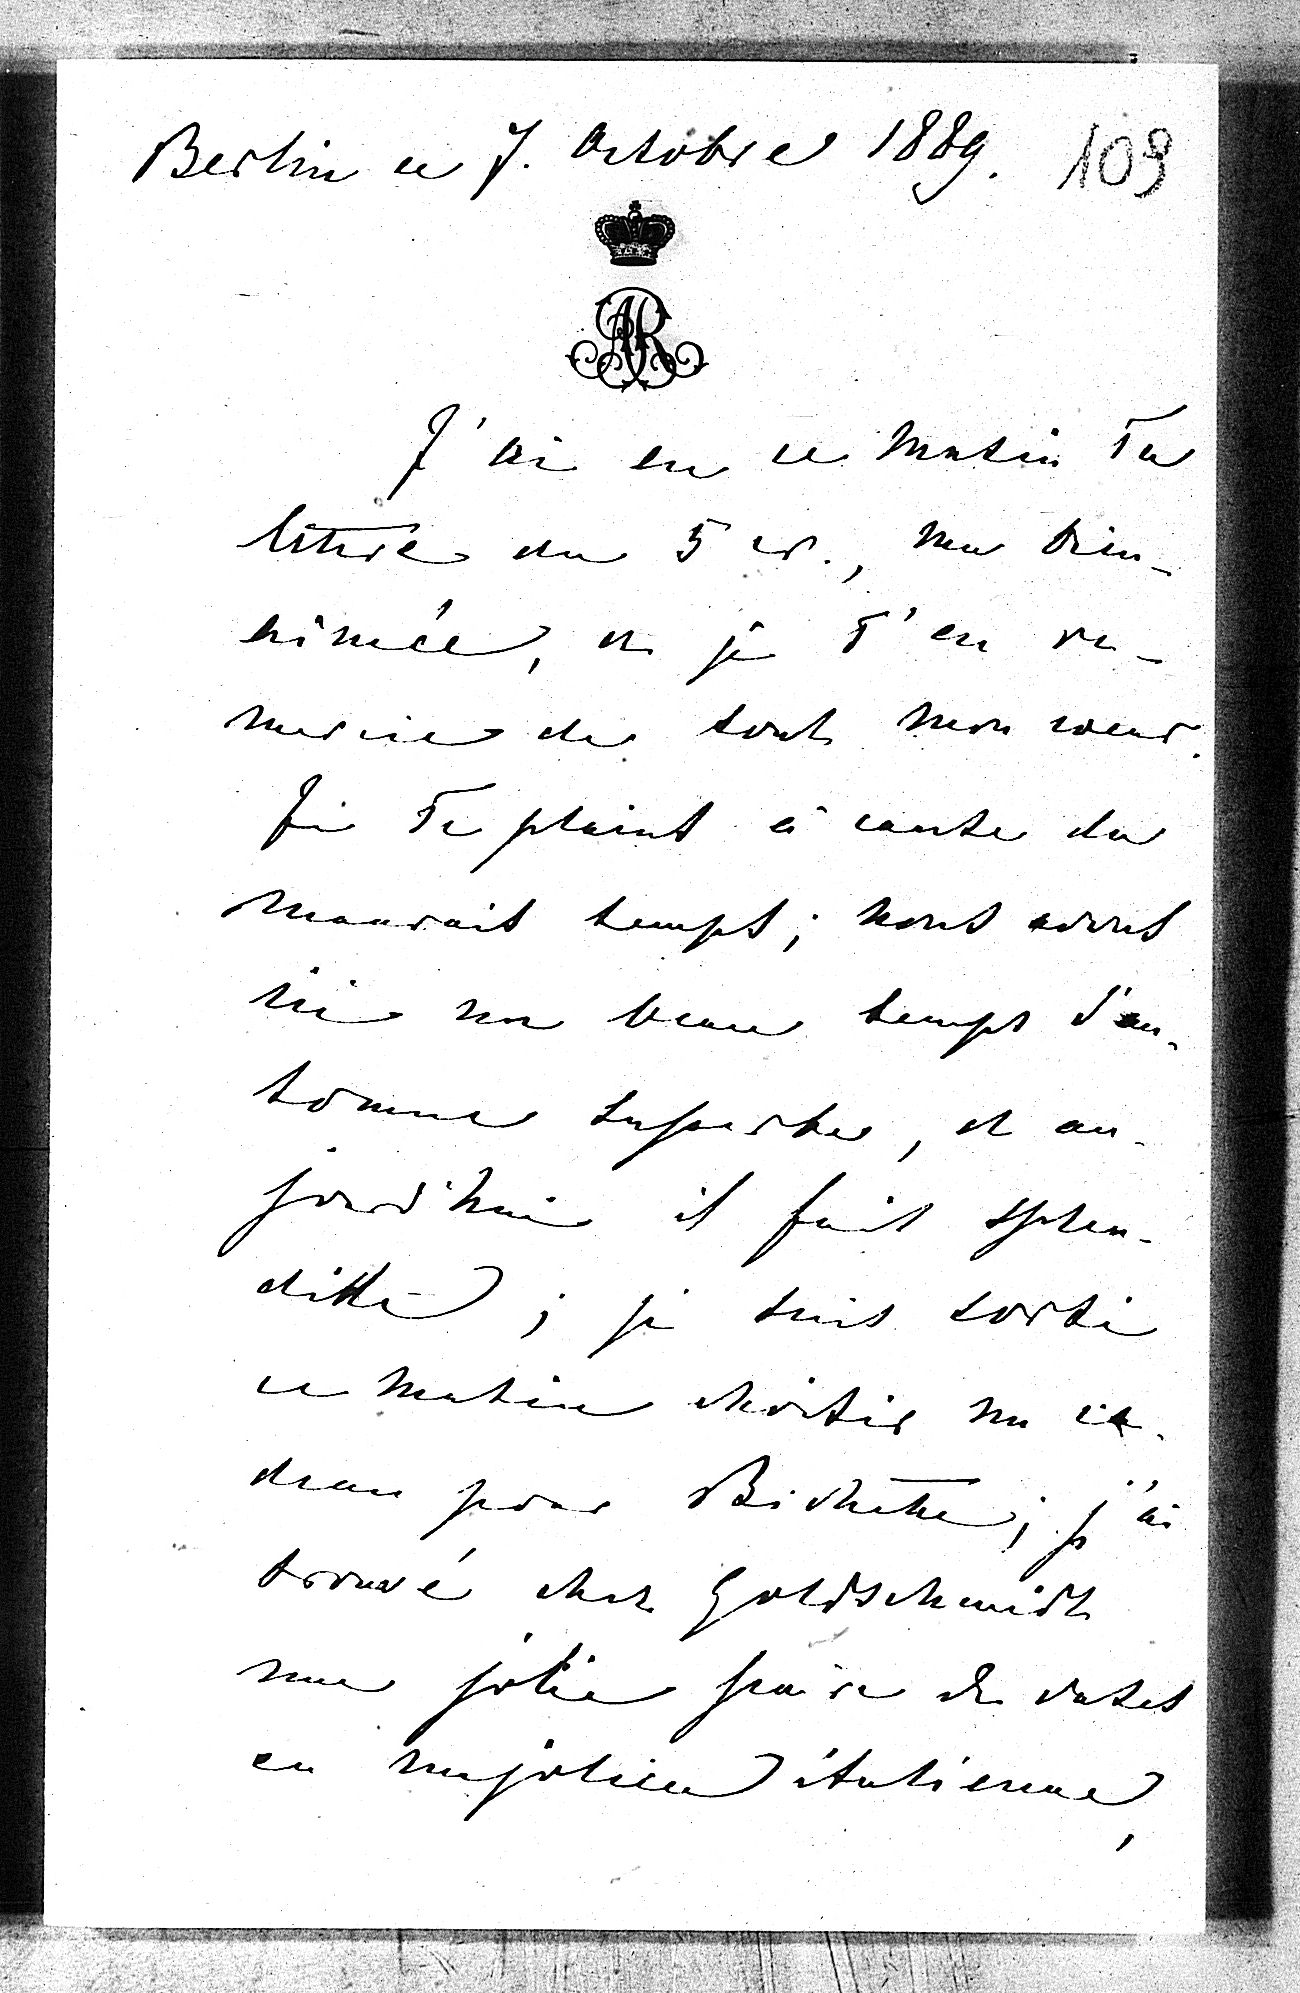 Berlin ce 7. Octobre 1889. 109
AR
J'ai eu ce matin Ta
lettre du 5 cr., ma bien-
aimée, et je T'en re-
mercie de tout mon coeur.
Je Te plains à cause du
mauvais temps; nous avons
ici un beau temps d'au-
tomne superbe, et au-
jourd'hui il fait splen-
dide; je suis sorti
ce matin choisir un ca-
deau pour Bichette; j'ai
trouvé chez Goldschmidt
une jolie paire de vases
en majolica italienne,